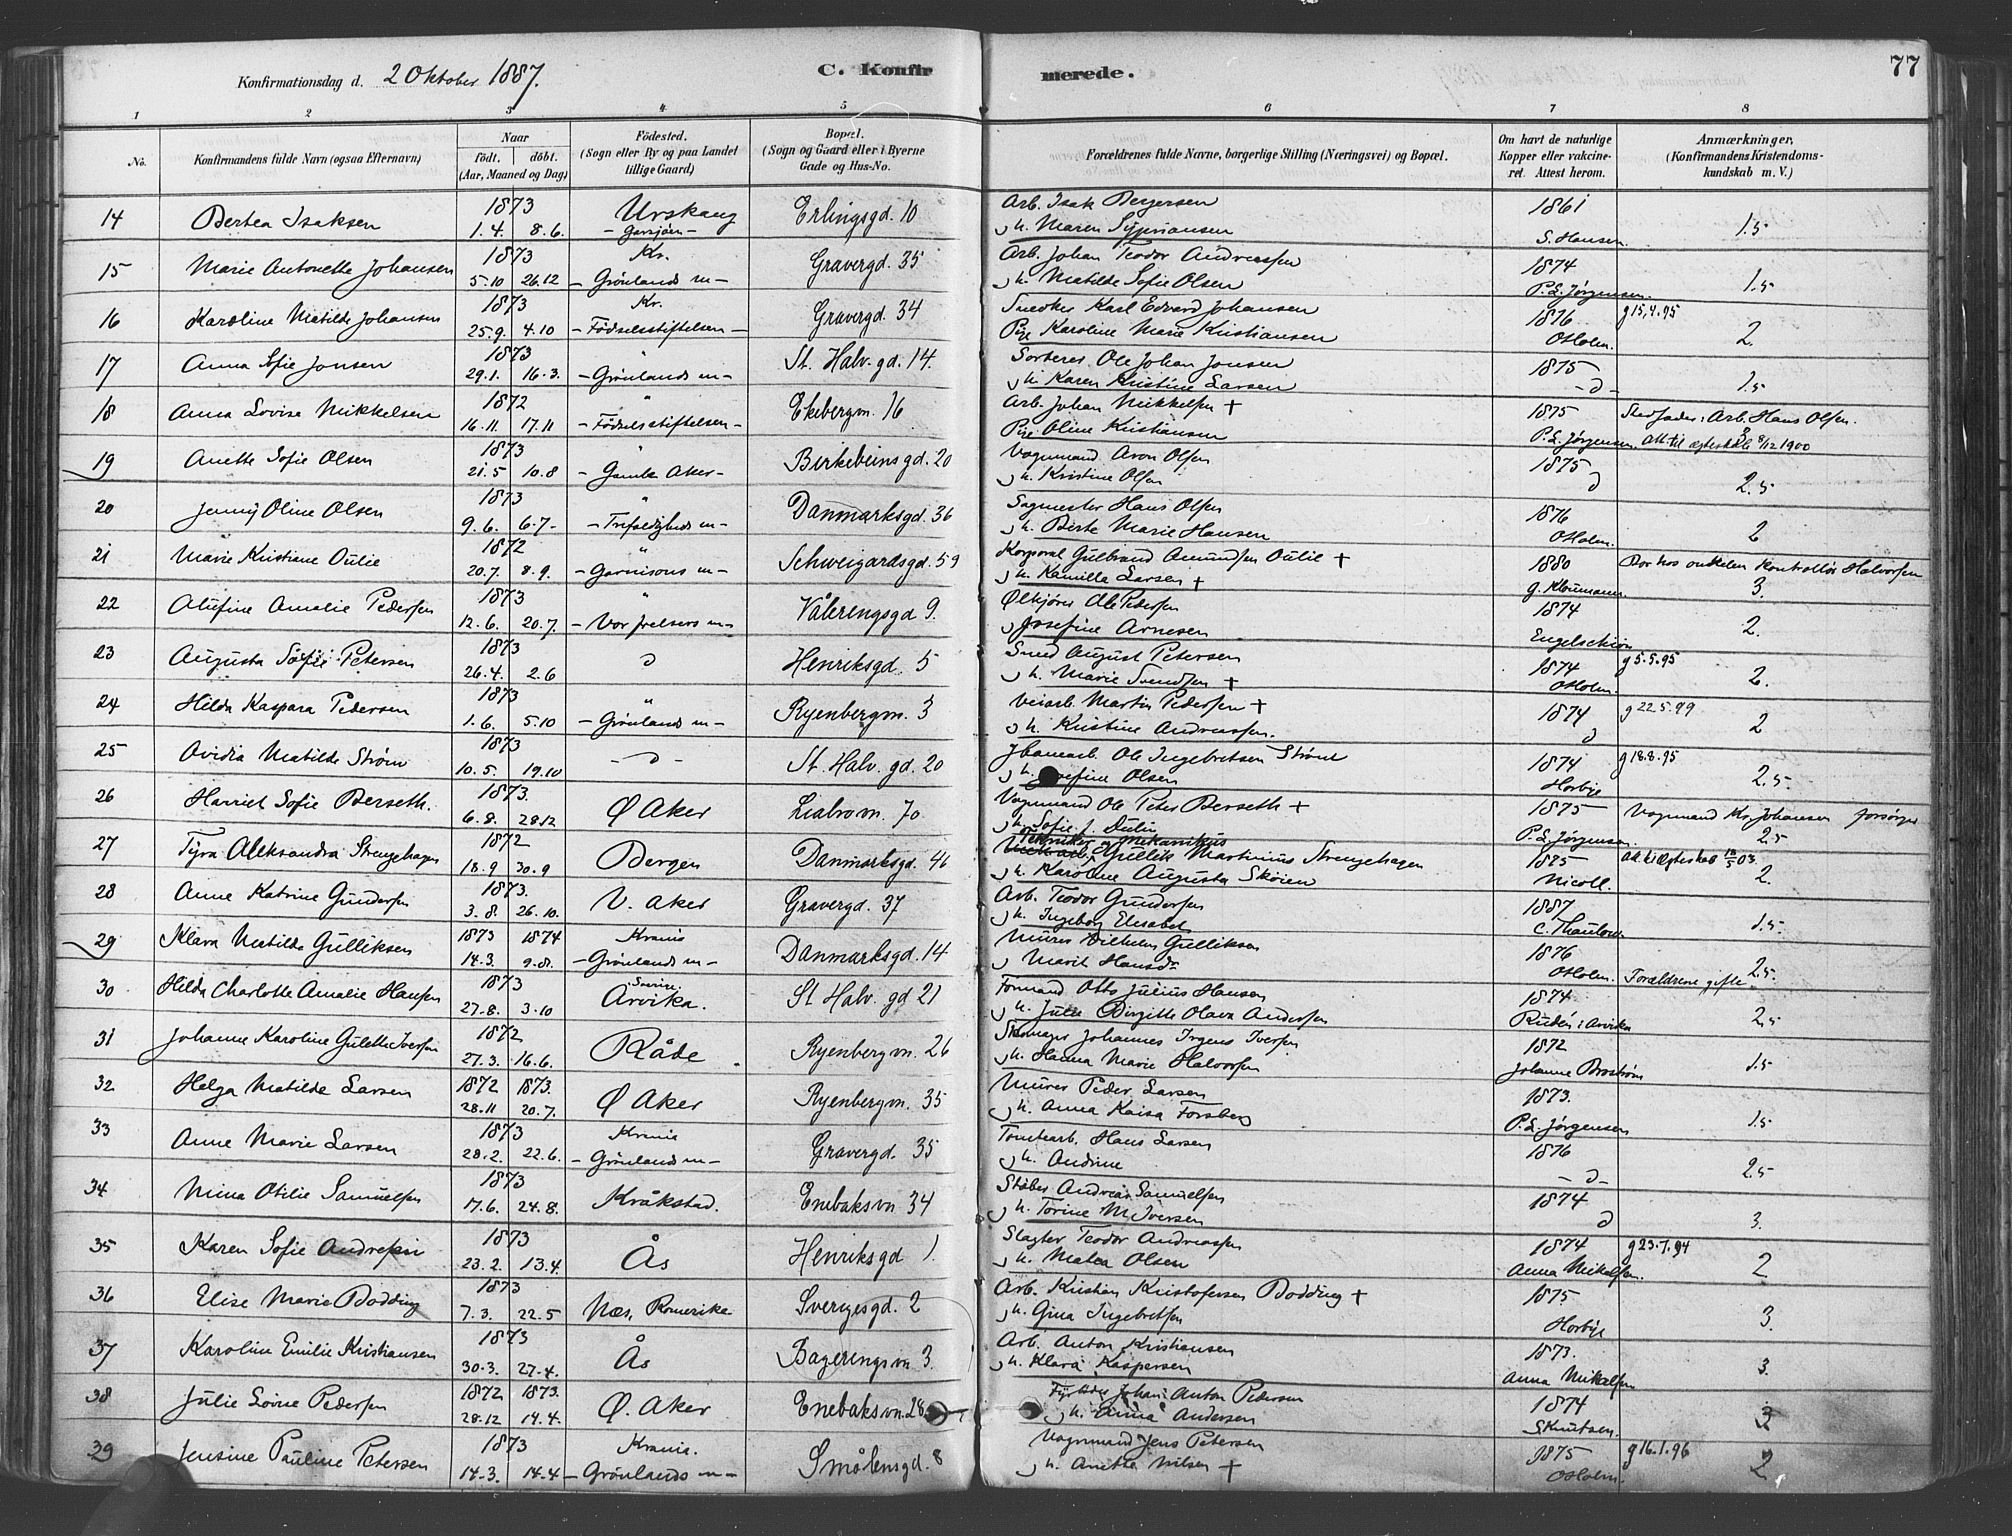 Konfirmationsdag d. 2 Oktober 1887.
C. Konfirmerede.
77
1 2 3 4 5 6 7 8
No.
Konfirmandens fulde Navn (ogsaa Efternavn)
Naar
födt. döbt.
(Aar, Maaned og Dag)
Födested.
(Sogn eller By og paa Landet
tillige Gaard)
Bopæl.
(Sogn og Gaard eller i Byerne
Gade og Hus-No.
Forældrenes fulde Navne, borgerlige Stilling (Næringsvei) og Bopæl.
Om havt de naturlige
Kopper eller vakcine-
ret. Attest herom.
Anmærkninger.
(Konfirmandens Kristendoms-
kundskab m. V.)
14 Bertea Isaksen 1873 1.4. 8.6. Urskaug Erlingsgd. 10 Arb. Isak Bergersen
h. Maren Syprianssen 1861 S. Hansen 1.5
15 Marie Antonette Johansen 1873 5.10 26.12 Kr. - Grönlands m - Gravergd. 35 Arb. Johan Teodor Andreassen
h. Matilde Sofie Olsen 1874 P.L. Jørgensen 1.5
16 Karoline Matilde Johansen 1873 25.9. 4.10 Kr. - Födselsstiftelsen - Gravergd. 34 Snedker Karl Edvard Johansen
Pige Karoline Marie Kristiansen 1876 O Holm. g 15.4.95 2.
17 Anna Sofie Jonsen 1873 29.1. 16.3. " - Grönlands m - St. Halv. gd. 14. Ole Johan Jonsen
h. Karen Kristine Larsen 1875 - d - 1.5
18 Anna Lovise Mikkelsen 1872 16.11. 17.11 " - Födselsstiftelsen - Ekebergvn. 16 Arb. Johan Mikkelsen +
Pige Oline Kristiansen 1875 P.L. Jørgensen Stedfader: Arb. Hans Olsen.
att. til ægteskab 8/12 1900
19 Anette Sofie Olsen 1873 21.5 10.8 " - Gamle Aker - Birkebeinsgd. 20 Vognmand Aron Olsen
h. Kristine Olsen 1875 d 2.5
20 Jenny Oline Olsen 1873 9.6. 6.7. " - Trefoldigheds m - Danmarksgd. 36 Sagmester Hans Olsen
h. Berte Marie Hansen 1876 O Holm. 2
21 Marie Kristiane Oulie 1872 20.7. 8.9. " - Garnisons m - Schweigaardsgd. 59 Korporal Gulbrand Amundsen Oulie +
h. Kamilla Larsen + 1880 Bor hos onkelen Kontrollör Halvorsen 3.
22 Alufine Amalie Pedersen 1873 12.6. 20.7. " - Vor frelsers m - Vålerengsgd 9. Ølkjörer Ole Pedersen
Josefine Arnesen 1874 Engelschiøn 2.
23 Augusta Sofie Petersen 1873 26.4. 2.6 d Henriksgd. 5 Smed August Petersen
h. Marie Svendsen + 1874 O Holm. g 5.5.95 2.
24 Hilda Kaspara Pedersen 1873 1.6. 5.10 " - Grönlands m - Ryenbergvn. 3 Veiarb. Martin Pedersen +
h. Kristine Andreassen. 1874 d g 22.5.99 2
25 Ovidia Matilde Strøm 1873 10.5. 19.10 - d - St. Halv. gd. 20 Ole Ingebretsen Strøm
h. Josefine Olsen 1874 Horbye g 18.8.95 2.5
26 Harriet Sofie Berseth. 1873. 6.8. 28.12 Ø Aker Liabrovn. 70 Vognmand Ole Peter Berseth +
h. Sofie J. Dulin 1875 P.L. Jørgensen Vognmand Kr. Johansen forsörger 2.5
27 Tyra Aleksandra Strengehagen 1872 18.9 30.9 Bergen Danmarksgd. 46 Tekniker og mekanikus
Gullik Martinius Strengehagen
h. Karoline Augusta Skøien 1875 Nicoll. att. til Ægteskab 12/5 03. 2.
28 Anne Katrine Gundersen 1873. 3.8. 26.10. V. Aker Gravergd. 37 Arb. Teodor Gundersen
h. Ingeborg Elisabet 1887 C. Thaulow 1.5.
29 Klara Matilde Gulliksen 1873 1874 14.3. 9.8. Krania - Grönlands m - Danmarksgd. 14 Murer Vilhelm Gulliksen
Marit Hansdr. 1876 O Holm. 2.5. Forældrene gifte
30 Hilda Charlotte Amalie Hansen 1873 27.8. 3.10 Sverige. Arvika. St Halv. gd 21 Formand Otto Julius Hansen
h. Julie Birgitte Olava Andersen 1874 Rudén i Arvika 2.5
31 Johanne Karoline Gulette Iversen 1872 27.3. 16.6. Råde Ryenbergvn. 26 Skomager Johannes Irgens Iversen
h. Hanna Marie Halvorsen 1872 Johanne Broström 1.5
32 Helga Matilde Larsen 1872 1873. 28.11 20.7. Ø Aker Ryenbergvn. 35 Murer Peder Larsen
h. Anna Kaisa Forsberg 1873. P.L. Jørgensen 1.5
33 Anne Marie Larsen 1873 28.2. 22.6. Krania - Grönlands m - Gravergd. 35 Tomtearb. Hans Larsen
h. Andrine 1876 - d - 2.5
34 Mina Otilie Samuelsen 1873 17.6. 24.8. Kråkstad. Enebaksvn 34 Støber Andreas Samuelsen
h. Torine M. Iversen 1874 d 3.
35 Karen Sofie Andresen 1873 23.2. 13.4. Ås Henriksgd 1. Slagter Teodor Andreassen
h. Matea Olsen 1874 Anna Mikalsen. g 23.7.94 2
36 Elise Marie Bodding 1873 7.3. 22.5 Næs, Romerike Sverigesgd. 2 Arb. Kristian Kristofersen Bodding +
h. Gina Ingebretsen 1875. Horbye 3.
37 Karoline Emilie Kristiansen 1873 30.3. 27.4. Ås Bageringsvn 3. Arb. Anton Kristiansen
h. Klara Kaspersen 1873. Anna Mikalsen 3.
38 Julie Lovise Pedersen 1872 1873. 28.12 14.4. Ø. Aker Enebaksvn. 28 Fyrböder Johan Anton Pedersen
h. Anna Andersen 1874 S Knutsen. 3
39 Jensine Pauline Petersen 1873 14.3. 14.4 Krania. - Grönlands m - Smålensgd. 8 Vognmand Jens Petersen
h. Anette Nilsen + 1875 O Holm. g 16.1.96 2